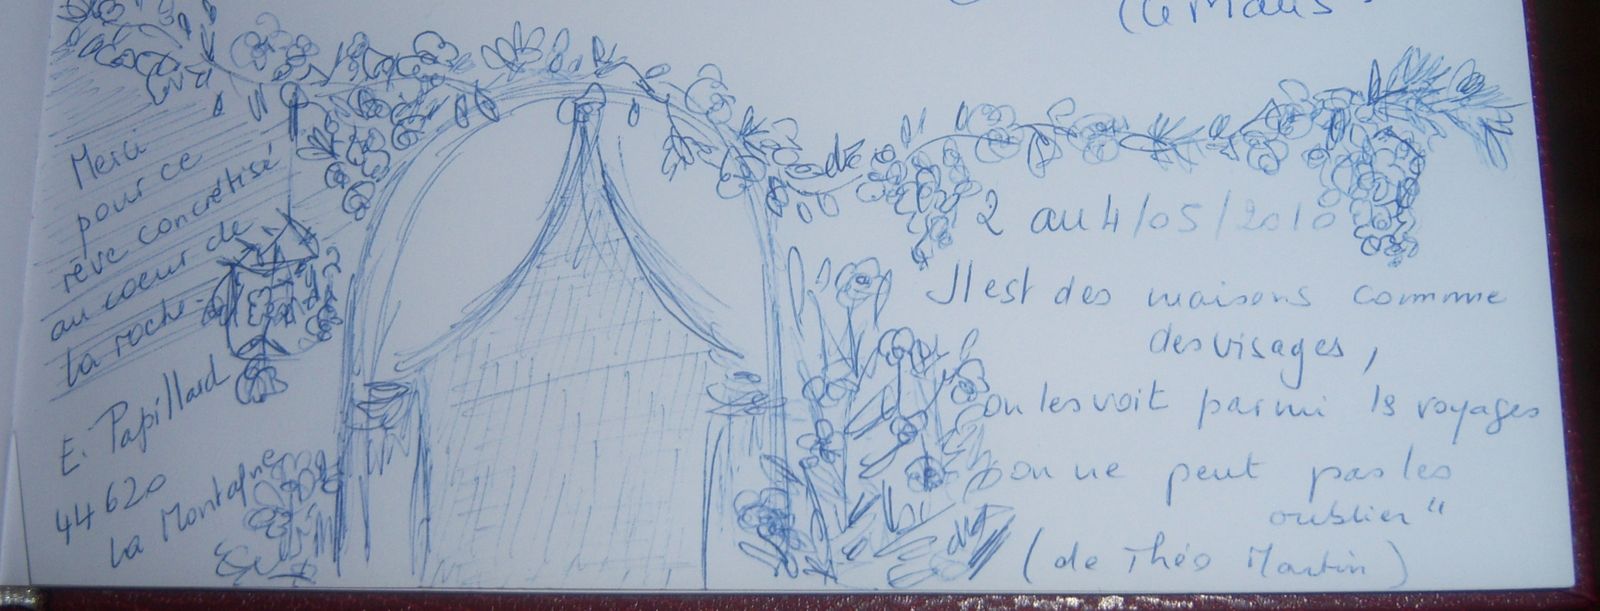 (Le Mans
Merci
pour ce
rêve concrétisé
au coeur de
la roche -
E. Papillard
44620
La Montagne
de
2 au 4/05/2010
Il est des maisons comme
des visages,
on les voit parmi ls voyages
on ne peut pas les
oublier"
(de Théo Martin)